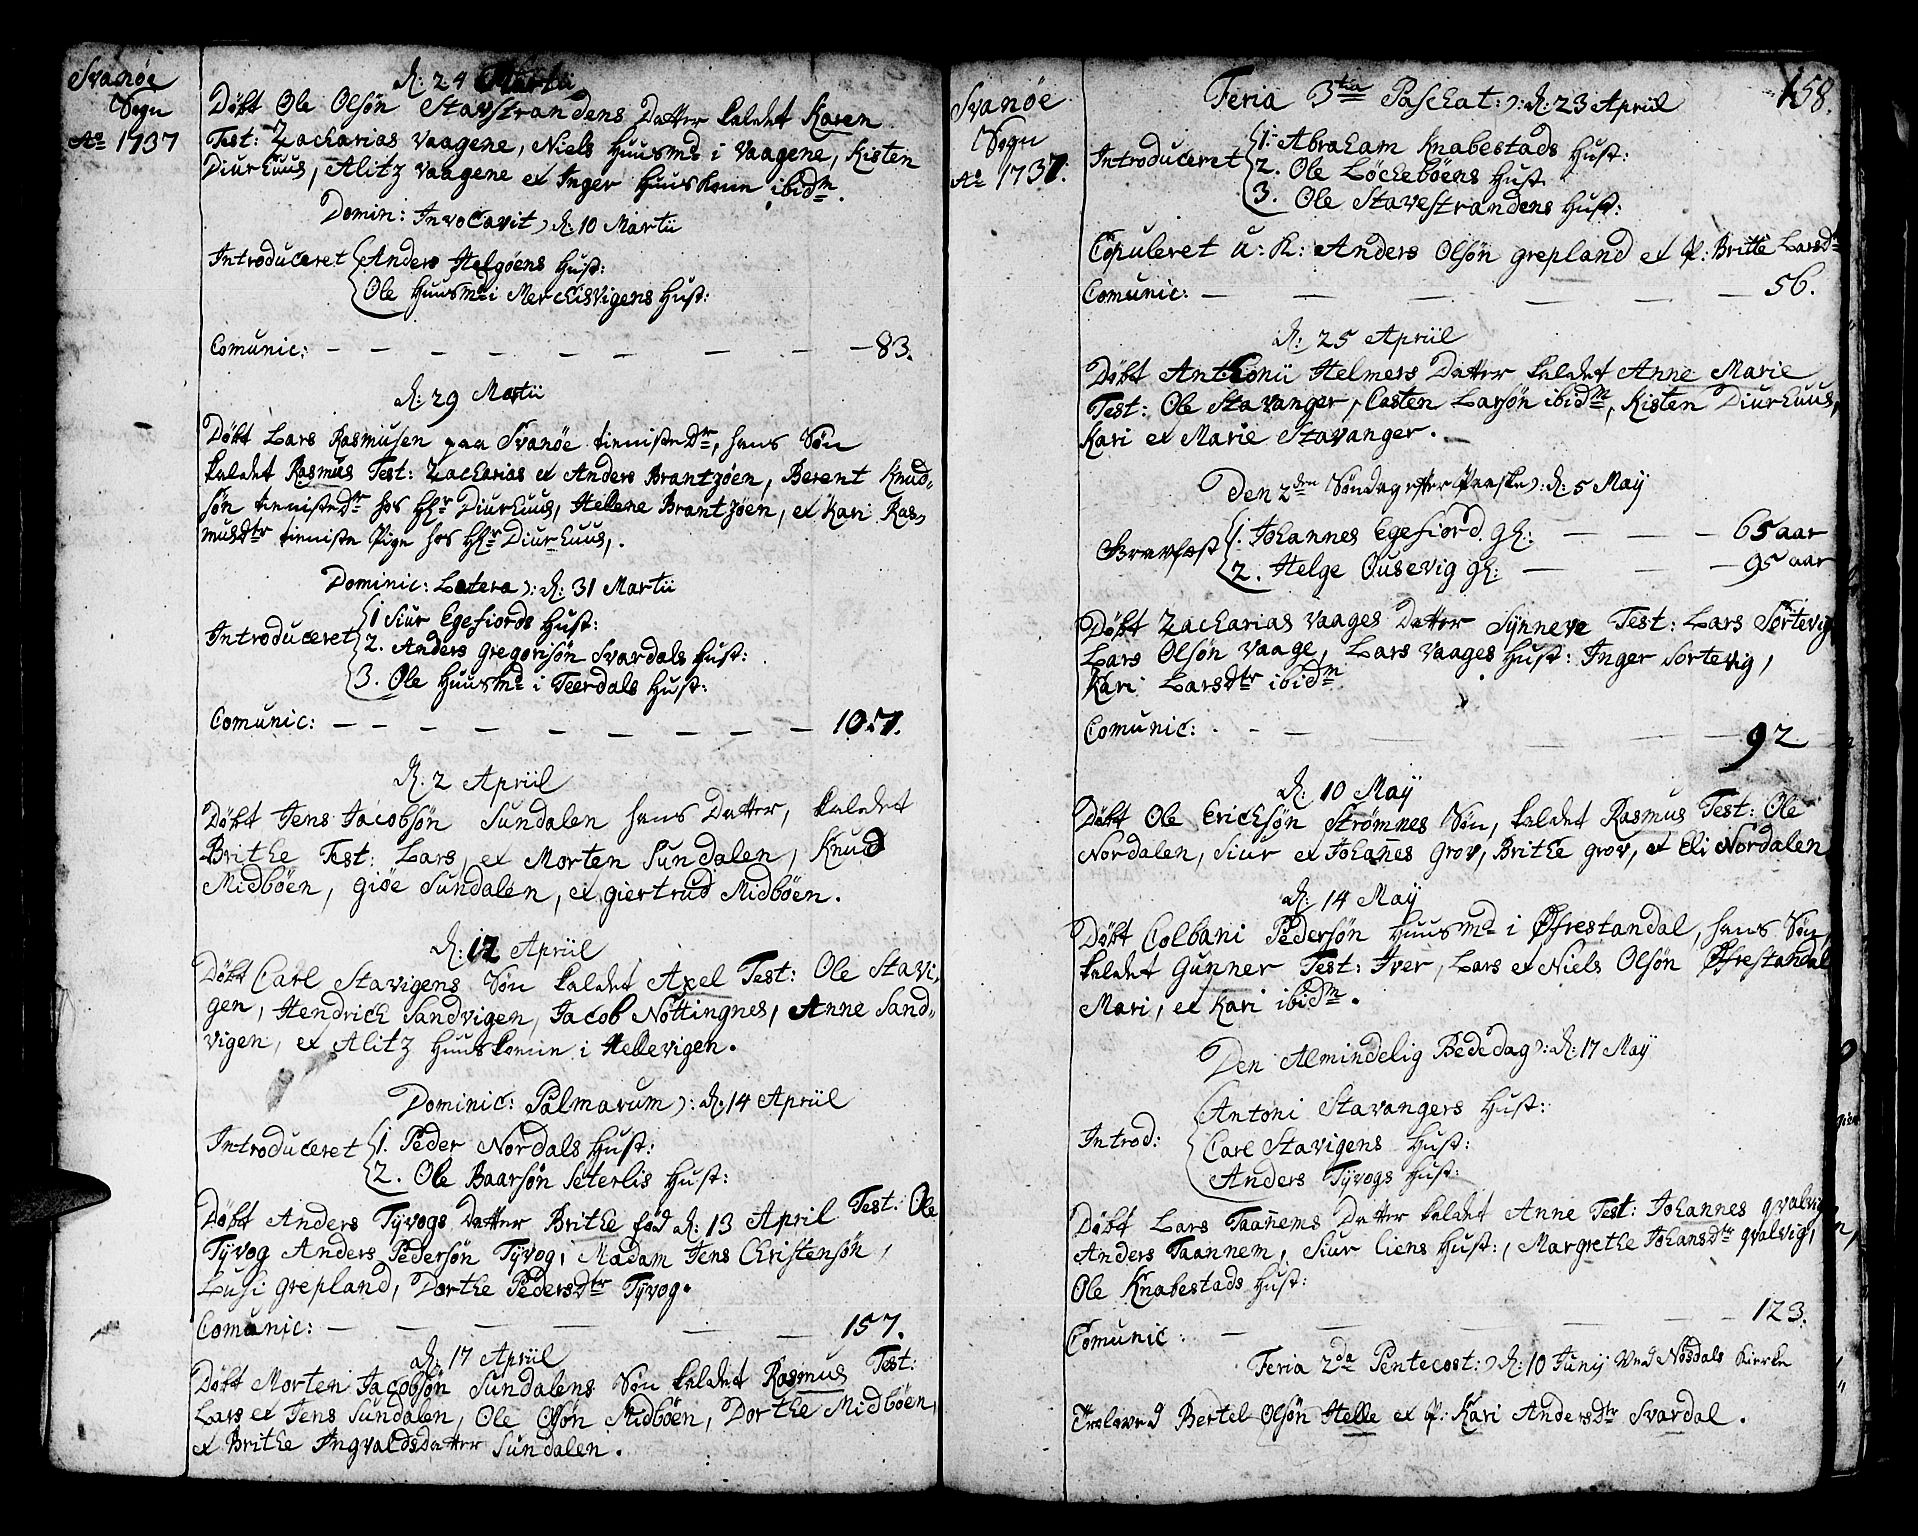 Svanøe
Sogn
Aō 1737
d: 24 Martii
Døbt Ole Olsøn Stavstrandens Datter kaldet Karen
Test: Zacharias Vaagene, Niels Huusmd i Vaagene, Kisten
Diurhuus, Alitz Vaagene et Inger Huuskone ibidm.
Domin: Invocavit): d: 10 Martii
Introduceret Anders Helgøens Hust:
Ole Huusmd i Merchisvigens Hust:
Comunic: — — — — — — — — 83.
d: 29 Martii
Døbt Lars Rasmusen paa Svanøe tienisteDr, hans Søn
kaldet Rasmus Test: Zacharias et Anders Brantzøen, Berent Knud-
søn tienisteDr hos Hr Diurhuus, Helene Brantzøen, et Kari Ras-
musdtr tieniste Pige hos Hr Diurhuus.
Dominic: Latera): d: 31 Martii
Introduceret 1 Siur Egefiords Hust:
2. Anders Gregorisøn Svardals Hust:
3. Ole Huusmd i Teerdals Hust:
Comunic: — — — — — — — — — 107.
d: 2 Apriil
Døbt Jens Jacobsøn Sundalen hans Datter, kaldet
Brithe Test: Lars, et Morten Sundalen, Knud
Midbøen, Giøe Sundalen, et Giertrud Midbøen.
d: 12 Apriil
Døbt Carl Stavigens Søn kaldet Axel Test: Ole Stavi-
gen, Hendrich Sandvigen, Jacob Nøttingnes, Anne Sand-
vigen, et Alitz Huuskone i Hellevigen.
Dominic: Palmarum): d: 14 Apriil
Introduceret 1. Peder Nordals Hust:
2. Ole Baarsøn Seterlis Hust:
Døbt Anders Tyvogs Datter Brithe fød d: 13 April Test: Ole
Tyvog Anders Pedersøn Tyvog, Madam Jens Christensøn,
Lusi Grepland, Dorthe Pedersdtr Tyvog.
Comunic: — — — — — — 157.
d: 17 Apriil
Døbt Morten Jacobsøn Sundalens Søn kaldet Rasmus Test:
Lars et Jens Sundalen, Ole Olsøn Midbøen, Dorthe Midbøen,
et Brithe Ingvaldsdatter Sundalen.
Svanøe
Sogn
Aō 1737.
158.
Feria 3tia Paschat:): d: 23 Apriil
Introduceret 1. Abraham Knabestads Hust:
2. Ole Løchebøens Hust
3. Ole Stavestrandens Hust:
Copuleret u: k: Anders Olsøn Grepland et P: Britte Larsdr
Comunic: — — — — — — 56.
d: 25 Apriil
Døbt Anthonii Helmers Datter kaldet Anne Marie
Test: Ole Stavanger, Casten Larsøn ibidm, Kisten Diurhuus,
Kari et Marie Stavanger.
Den 2den Søndag efter Paaske): d: 5 May
1. Johannes Egefiord gl: — — — 65 aar
2. Helge Ousevig gl: — — — 95 aar
Døbt Zacharias Vaages Datter Synneve Test: Lars Sortevig
Lars Olsøn Vaage, Lars Vaages Hust: Inger Sortevig,
Kari Larsdtr ibidm
Comunic: — — — — — 92
d: 10 May
Døbt Ole Erichsøn Strømnes Søn, kaldet Rasmus Test: Ole
Nordalen, Siur et Johannes Grov, Brithe Grov, et Eli Nordalen
d: 14 May
Døbt Colbani Pedersøn Huusmd i Øfrestandal, hans Søn
kaldet Gunner Test: Iver, Lars et Niels Olsøn Øfrestandal
Mari, et Kari ibidm.
Den Almindelig Bededag): d: 17 May
Introd: Antoni Stavangers Hust:
Carl Stavigens Hust:
Anders Tyvogs Hust:
Døbt Lars Taannems Datter kaldet Anne Test: Johannes Qvalvig
Anders Taannem, Siur Liens Hust:, Margrethe Johansdtr Qvalvig,
Ole Knabestads Hust:
Comunic: — — — — — 123.
Feria 2da Pentecost:): d: 10 Junij ved Nosdals Kierke
Troloved Bertel Olsøn Helle et P: Kari Andersdtr Svardal.